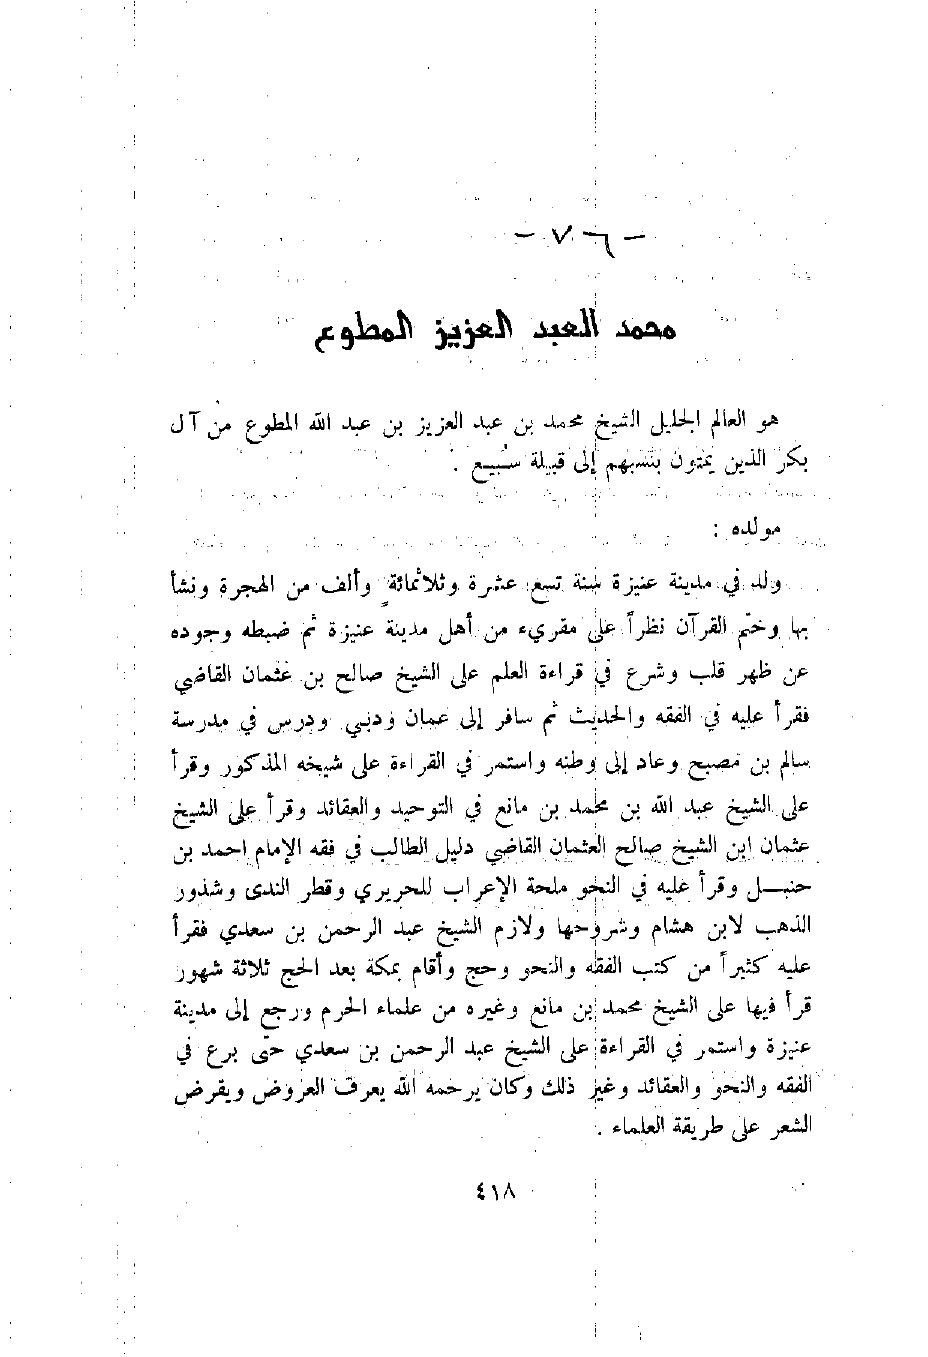 - ٧٦ -
محمد العبد العزيز المطوع
هو العالم الجليل الشيخ محمد بن عبد العزيز بن عبد الله المطوع من آل
بكر الذين يمتون بنسبهم إلى قبيلة سُبيع .
مولده :
ولد في مدينة عنيزة سنة تسع عشرة وثلاثمائة وألف من الهجرة ونشأ
بها وختم القرآن نظراً على مقريء من أهل مدينة عنيزة ثم ضبطه وجوده
عن ظهر قلب وشرع في قراءة العلم على الشيخ صالح بن عثمان القاضي
فقرأ عليه في الفقه والحديث ثم سافر إلى عمان ودبي ودرس في مدرسة
سالم بن مصبح وعاد إلى وطنه واستمر في القراءة على شيخه المذكور وقرأ
على الشيخ عبد الله بن محمد بن مانع في التوحيد والعقائد وقرأ على الشيخ
عثمان ابن الشيخ صالح العثمان القاضي دليل الطالب في فقه الإمام احمد بن
حنبــل وقرأ عليه في النحو ملحة الإعراب للحريري وقطر الندى وشذور
الذهب لابن هشام وشروحها ولازم الشيخ عبد الرحمن بن سعدي فقرأ
عليه كثيراً من كتب الفقه والنحو وحج وأقام بمكة بعد الحج ثلاثة شهور
قرأ فيها على الشيخ محمد بن مانع وغيره من علماء الحرم ورجع إلى مدينة
عنيزة واستمر في القراءة على الشيخ عبد الرحمن بن سعدي حتى برع في
الفقه والنحو والعقائد وغير ذلك وكان يرحمه الله يعرف العروض ويقرض
الشعر على طريقة العلماء .
٤١٨